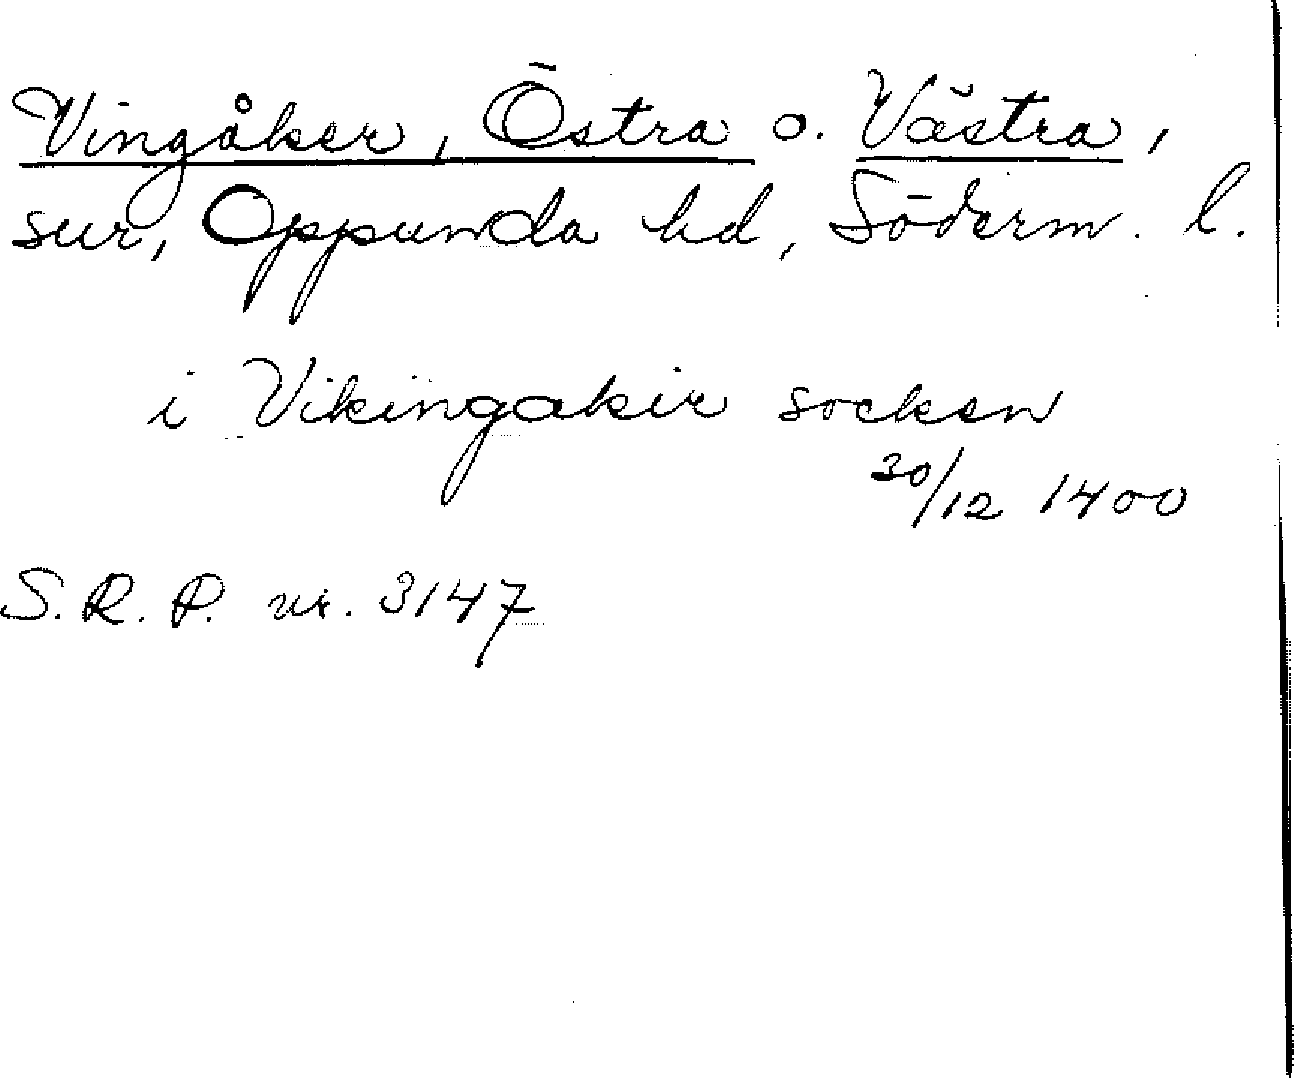 Vingåker, Östra o. Västra,
snr, Oppunda hd, Söderm. l.
i Vikingakir socken
30/12 1400
S.R.P. nr. 3147